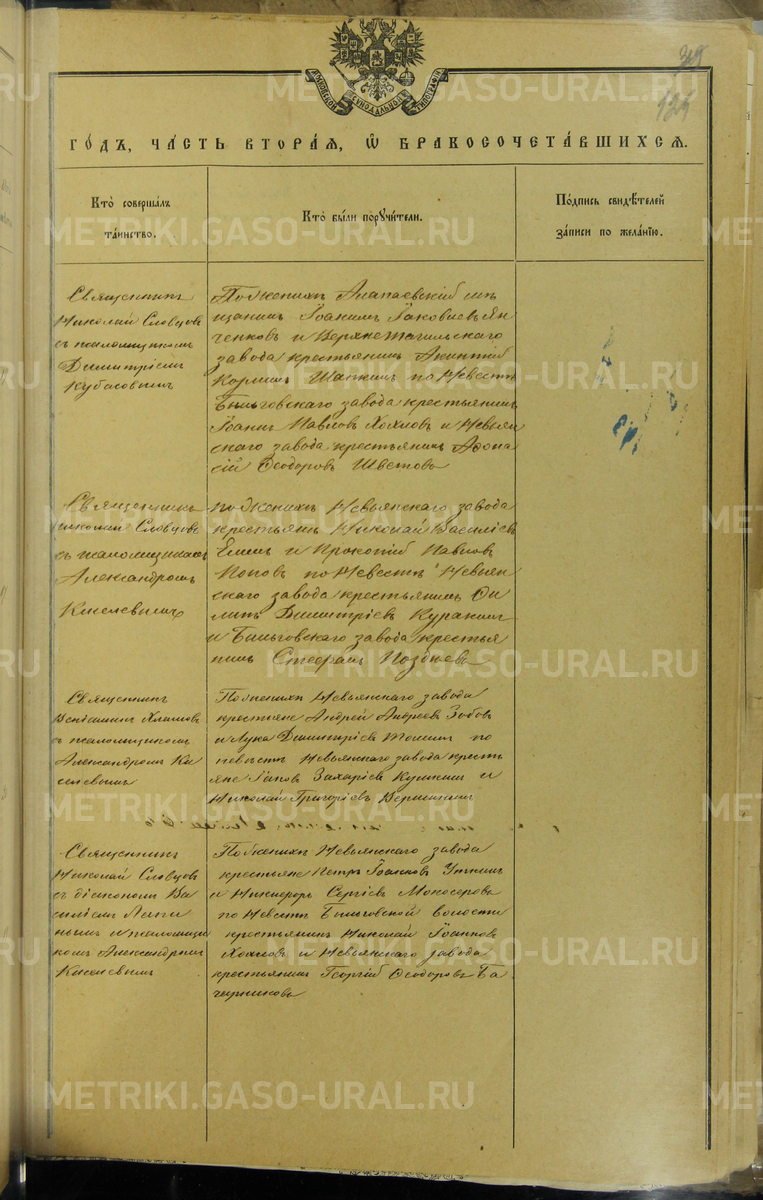 МОСКОВСКОЙ СѴНОДАЛЬНОЙ ТИПОГРАФІИ
125
ГО́ДЪ, ЧА́СТЬ ВТОРА́Я, Ѽ БРАКОСОЧЕТА́ВШИХСЯ.
Кто̀ соверша́лъ
та́инство.
Кто̀ бы́ли порꙋчи́тели.
По́дпись свидѣ́телей
за́писи по жела́нїю.
Священникъ
Николай Словцовъ
съ псаломщикомъ
Димитріемъ
Кубасовымъ
По женихѣ Алапаевскій мѣ
щанинъ Іоакимъ Іаковлевъ Ян
ченковъ и Верхнетагильскаго
завода крестьянинъ Акинтій
Шапкинъ по невестѣ
Быньговскаго завода крестьянинъ
Іоаннъ Павловъ Хохловъ и Невьян
скаго завода крестьянинъ Афона
сій Ѳеодоровъ Шветовъ
Священникъ
Николай Словцовъ
съ псаломщикомъ
Александромъ
Киселевымъ
По женихѣ Невьянскаго завода
крестьяне Николай Василіевъ
Елинъ и Прокопій Павловъ
Поповъ по невестѣ Невьян
скаго завода крестьянинъ Фи
липъ Димитріевъ Куракинъ
и Быньговскаго завода крестья
нинъ Стефанъ Позднеевъ
Священникъ
Веніаминъ Хлыновъ
съ псаломщикомъ
Александромъ Ки
селевымъ
По женихѣ Невьянскаго завода
крестьяне Андрей Андреевъ Зобовъ
и Лука Димитріевъ по
невѣстѣ Невьянскаго завода кресть
яне Іаковъ Захаріевъ Кушкинъ и
Николай Григоріевъ Вершининъ
Священникъ
Николай Словцовъ
съ діакономъ Ва
силіемъ Лапи
нымъ и псаломщи
комъ Александромъ
Киселевымъ
По женихѣ Невьянскаго завода
крестьяне Петръ Іоанновъ Уткинъ
и Никифоръ Сергіевъ Мокосеровъ
по невестѣ Быньговской волости
крестьянинъ Николай Іоанновъ
Хохловъ и Невьянскаго завода
крестьянинъ Георгій Ѳеодоровъ Ба
чуринковъ
METRIKI.GASO-URAL.RU
METRIKI.GASO-URAL.RU
METRIKI.GASO-URAL.RU
METRIKI.GASO-URAL.RU
METRIKI.GASO-URAL.RU
METRIKI.GASO-URAL.RU
METRIKI.GASO-URAL.RU
METRIKI.GASO-URAL.RU